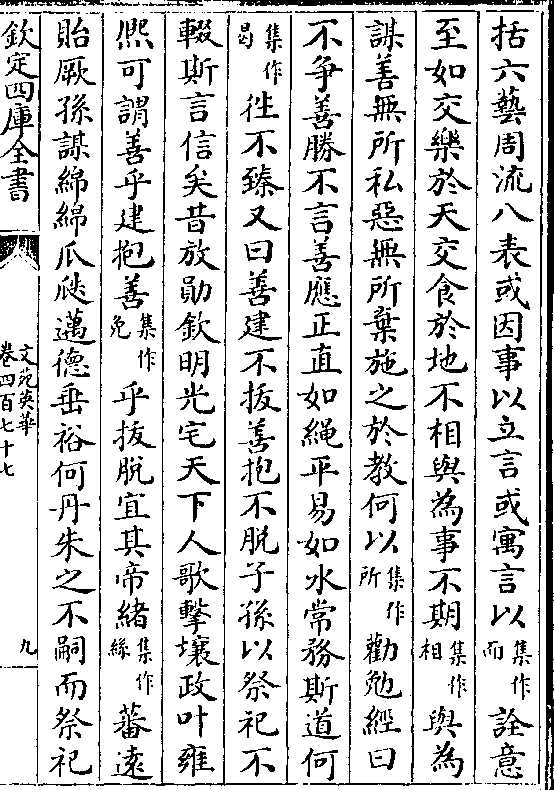 括六藝周流八表或因事以立言或寓言以集作而詮意
至如交樂於天交食於地不相與為事不期集作相與為
謀善無所私惡無所棄施之於教何以集作所勸勉經曰
不爭善勝不言善應正直如繩平易如水常務斯道何
集作曷徃不臻又曰善建不拔善抱不脫子孫以祭祀不
輟斯言信矣昔放勛欽明光宅天下人歌擊壤政叶雍
熈可謂善乎建抱善集作免乎拔脫宜其帝緒集作絲蕃遠
貽厥孫謀綿綿瓜瓞邁德垂裕何丹朱之不嗣而祭祀
欽定四庫全書
文苑英華
卷四百七十七
九